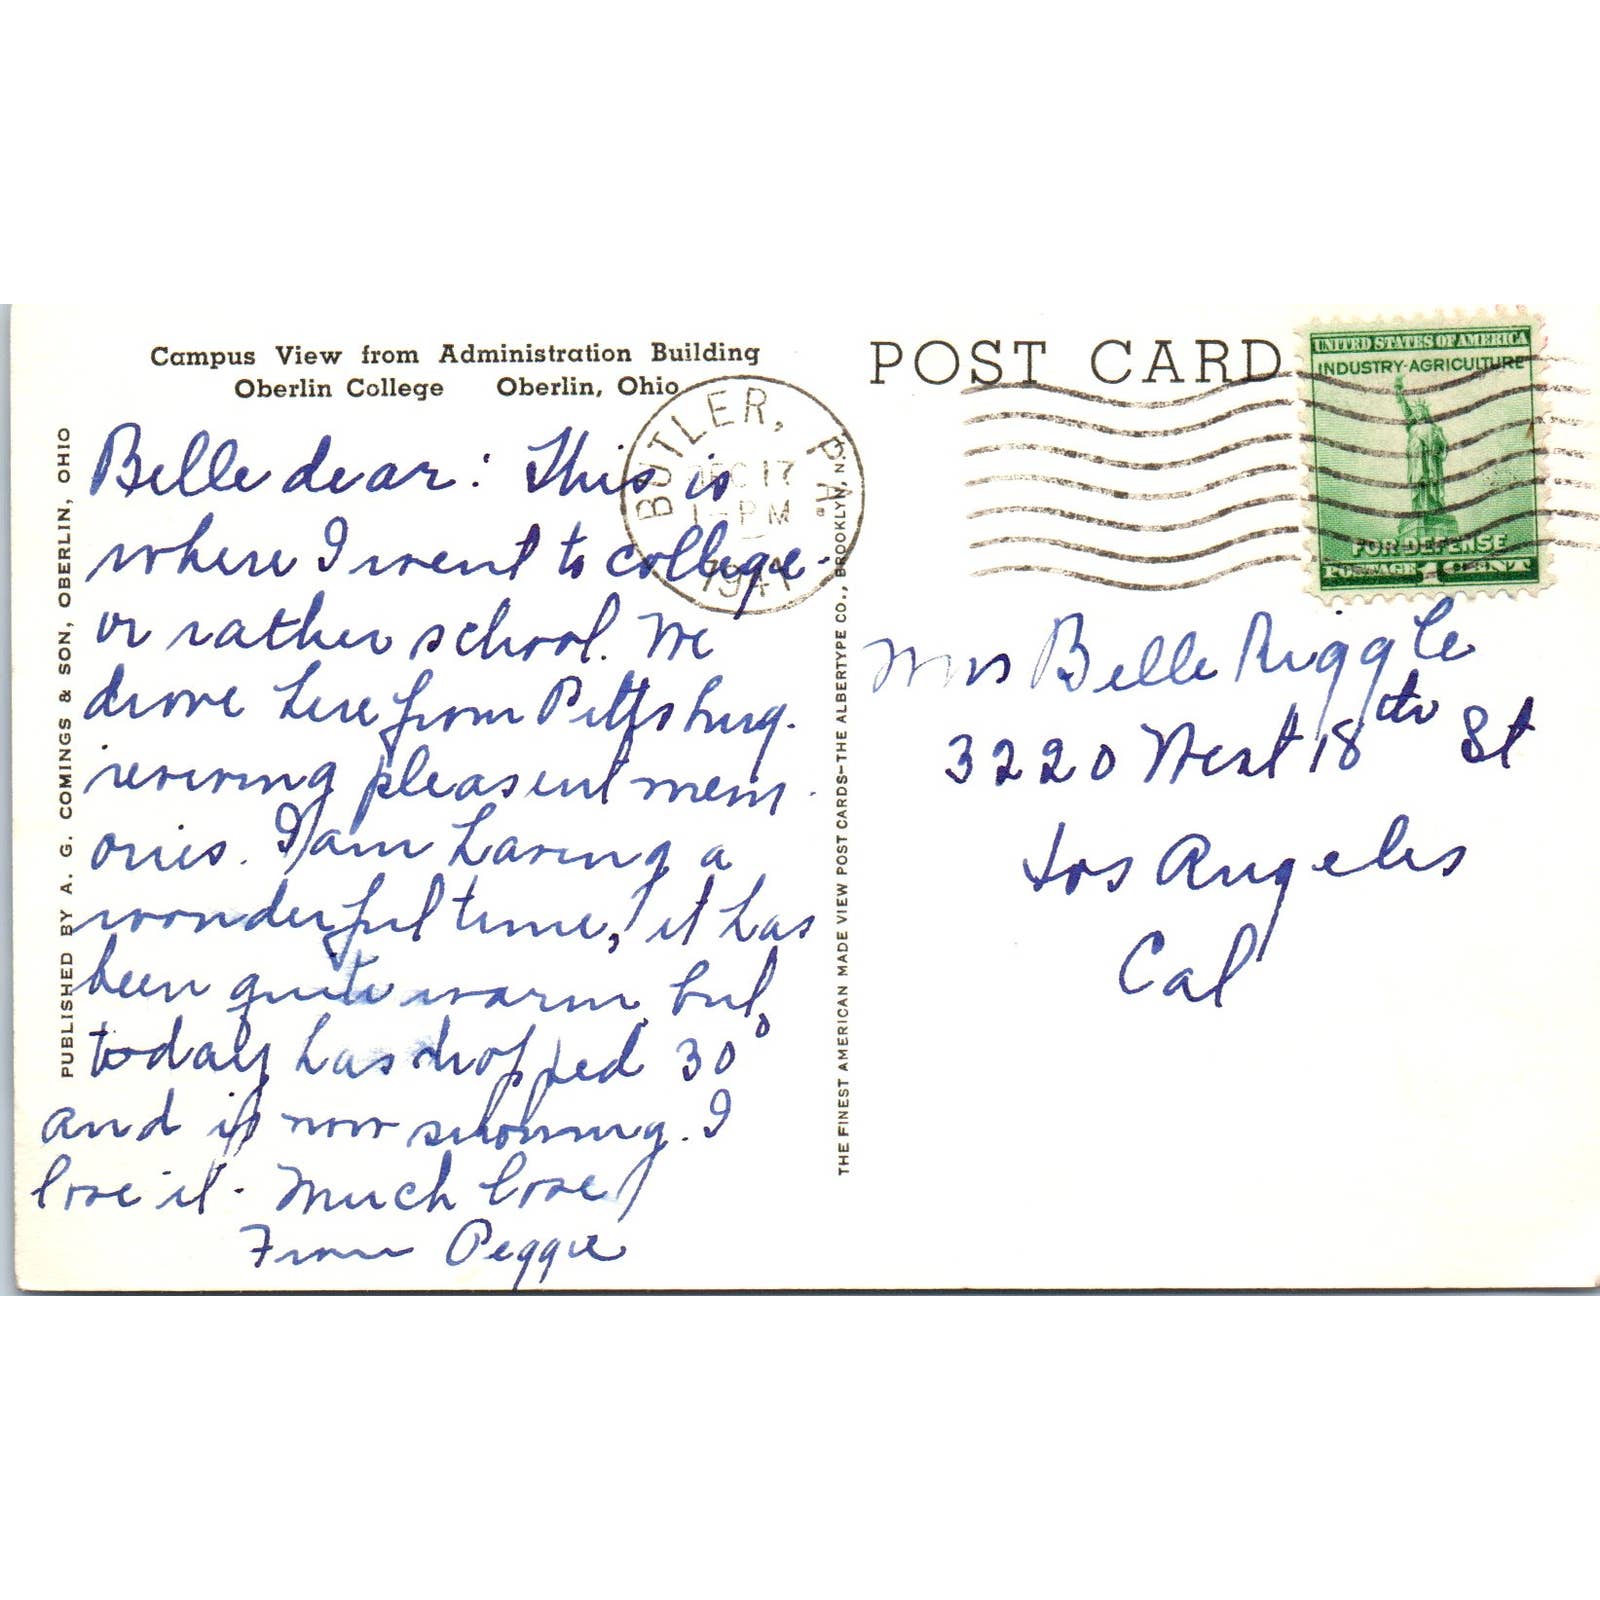 Campus View from Administration Building
Oberlin College Oberlin, Ohio
Belle dear: This is
where I went to college -
or rather school. We
drove here from Pittsburg.
reviving pleasent mem-
ories. I am having a
wonderful time, it has
been quite warm, but
today has dropped 30°
and is now snowing. I
love it. Much love
From Peggie
PUBLISHED BY A. G. COMINGS & SON, OBERLIN, OHIO
THE FINEST AMERICAN MADE VIEW POST CARDS-THE ALBERTYPE CO., BROOKLYN, N.Y.
POST CARD
BUTLER, PA.
DEC 17
PM
1941
UNITED STATES OF AMERICA
INDUSTRY·AGRICULTURE
FOR DEFENSE
POSTAGE 1 CENT
Mrs Belle Riggle
3220 West 18th St
Los Angeles
Cal